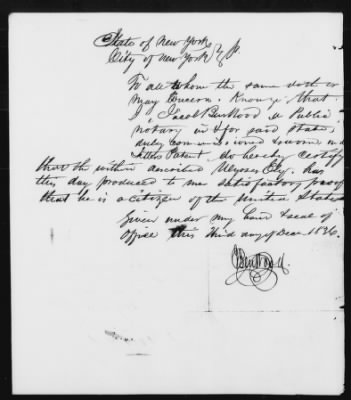 State of New York
City of New York } Ss.
To all whom the same doth or
May Concern. Know ye that
I, Jacob a Public
notary in & for said State,
duly commissioned & sworn
Letters Patent, do hereby certify
that the within Ulysses Ely. has
this day produced to me satisfactory proof
that he is a citizen of the United States
Given under my hand & seal of
Office this third day of Decr. 1836.